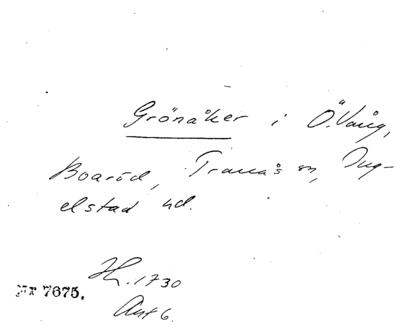 Grönåker i Ö. Vång,
Boaröd, Tranås sn, Ing-
elstad hd.
H. 1730
Nr 7675.
Akt 6.